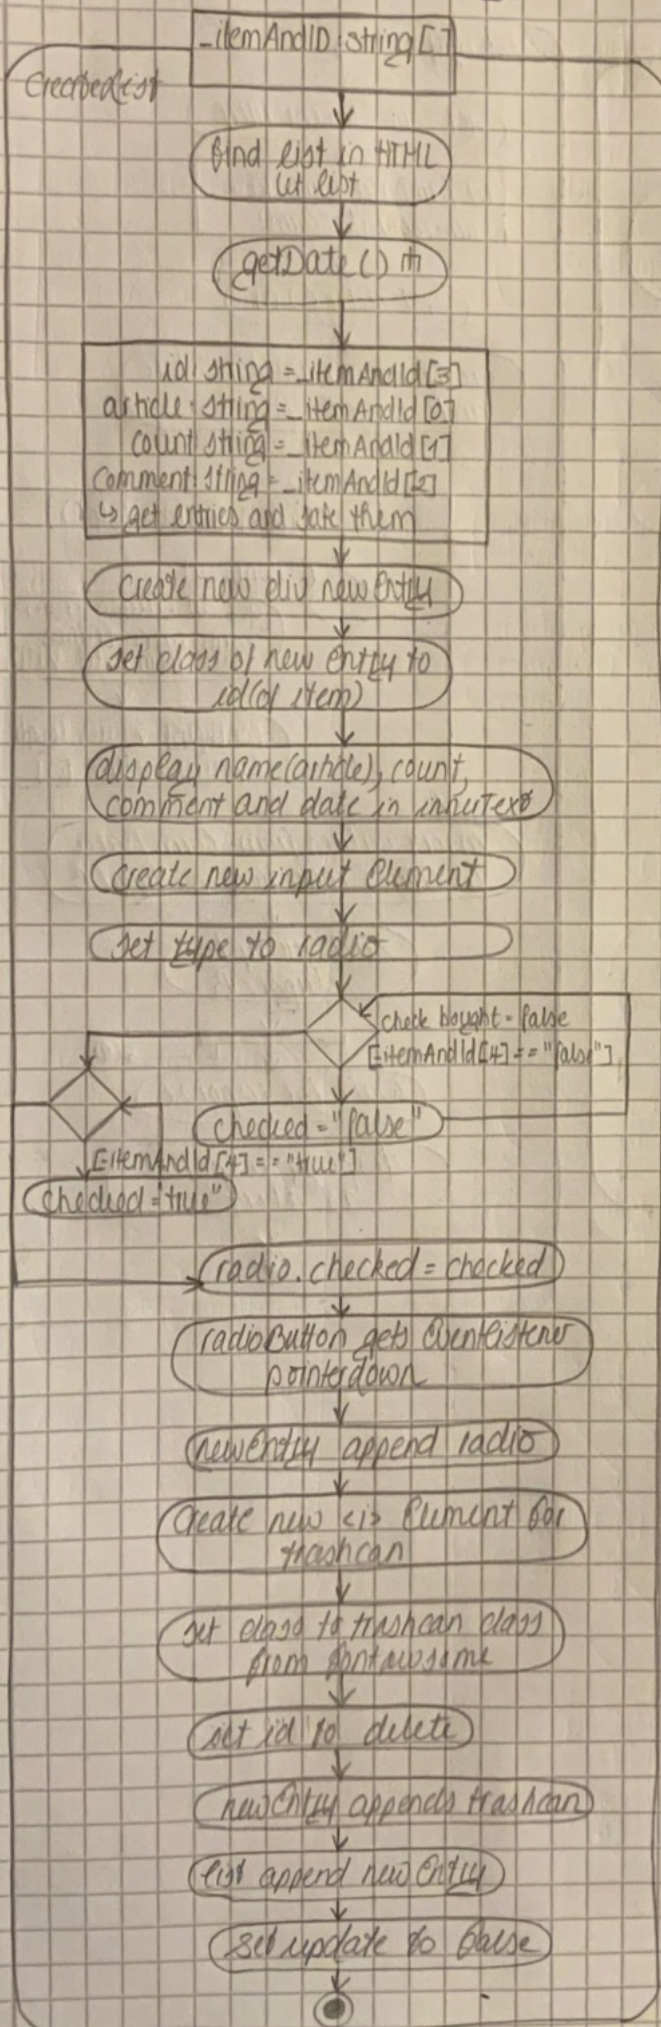 _itemAndID:string[]
CreatedList
find list in HTML
let list
getDate()
id: string = _itemAndId[3]
article: string = _itemAndId[0]
count string = _itemAndId[1]
comment: string = _itemAndId[2]
↳ get entries and safe them
create new div newEntry
set class of new Entry to
id(of item)
display name(article), count,
comment and date in innerText
create new input Element
set type to radio
check bought = false
[itemAndId[4] == "false"]
checked = "false"
[itemAndId[4] == "true"]
checked = "true"
radio.checked = checked
radioButton gets EventListener
pointerdown
newEntry append radio
Create new <i> Element for
trashcan
set class to trashcan class
from fontawsome
set id to delete
newEntry appends trashcan
list append newEntry
set update to false